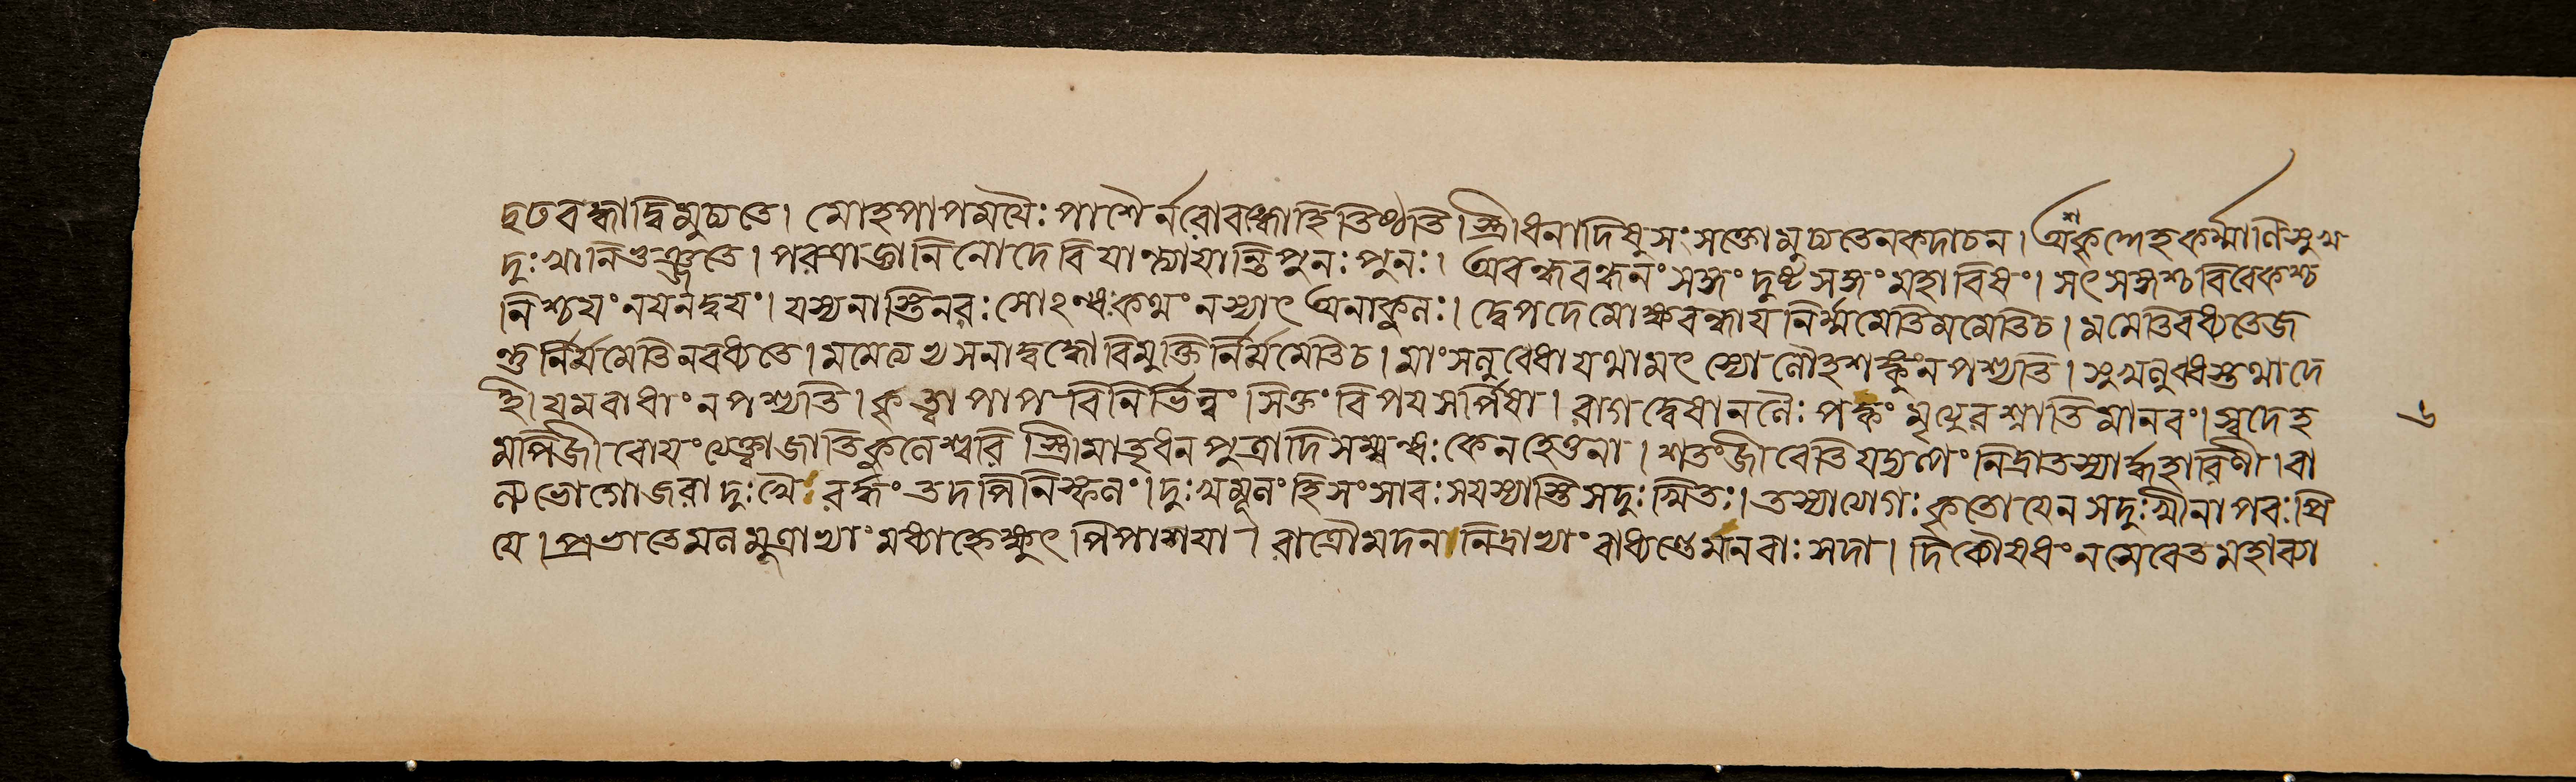 দৃঢবন্ধাদ্বিমুচ্যতে। মোহপাপময়ৈঃ পাশৈর্নরোবদ্ধোহিতিষ্ঠতি। স্ত্রীধনাদিষুসংসক্তোমুচ্যতেনকদাচন। অংশকৃদ্দেহকর্ম্মাণিসুখ
দুঃখানিভুঞ্জতে। পরত্রাজ্ঞানিনোদেবি যান্ত্যায়ান্তি পুনঃ পুনঃ। অবন্ধবন্ধনং সঙ্গং দুষ্টসঙ্গং মহাবিষং। সৎসঙ্গশ্চবিবেকশ্চ
নিশ্চয়ং নয়নদ্বয়ং। যস্যনাস্তিনরঃ সোঽন্ধঃ কথং নস্যাৎ অনাকুলঃ। দ্বেপদে মোক্ষবন্ধায় নির্ম্মমেতিমমেতিচ। মমেতিবধ্যতেজ
ন্তুর্নির্মমেতিনবধ্যতে। মমেত্যখসনাদ্বন্ধোবিমুক্তির্নির্মমেতিচ। মাংসলুবেধা যথামৎস্যোলৌহশঙ্কুং ন পশ্যতি। সুখলুব্ধস্তথাদে
হী যমবাধাং ন পশ্যতি। কৃত্বাপাপ বিনির্ভিন্নং সিক্তং বিপযসর্পিষা। রাগদ্বেষানলৈঃ পক্বং মৃত্যুরশ্নাতি মানবং। স্বদেহ
মপিজীবোয়ং ত্যেক্ত্বাজাতিকুলেশ্বরি স্ত্রীমাতৃধন পুত্রাদিসম্মন্ধঃ কেনহেতুনা। শতংজীবেতি যদ্যল্পং নিদ্রাতস্যার্দ্ধহারিণী। বা
ল্যভোগোজরাদুঃখৈরর্দ্ধং তদপিনিস্ফলং। দুঃখমূলং হিসংসারঃ সযস্যাস্তি সদুঃখিতঃ। তস্যাযোগঃ কৃতোযেন সদুঃখীনাপরঃ প্রি
যে। প্রভাতেমলমূত্রাভ্যাং মধ্যাহ্নেক্ষুৎ পিপাশয়া। রাত্রৌমদনানিদ্রাভ্যাং বাধ্যন্তেমানবাঃ সদা। দিকৌষধং নমেবেত মহাকা
৬